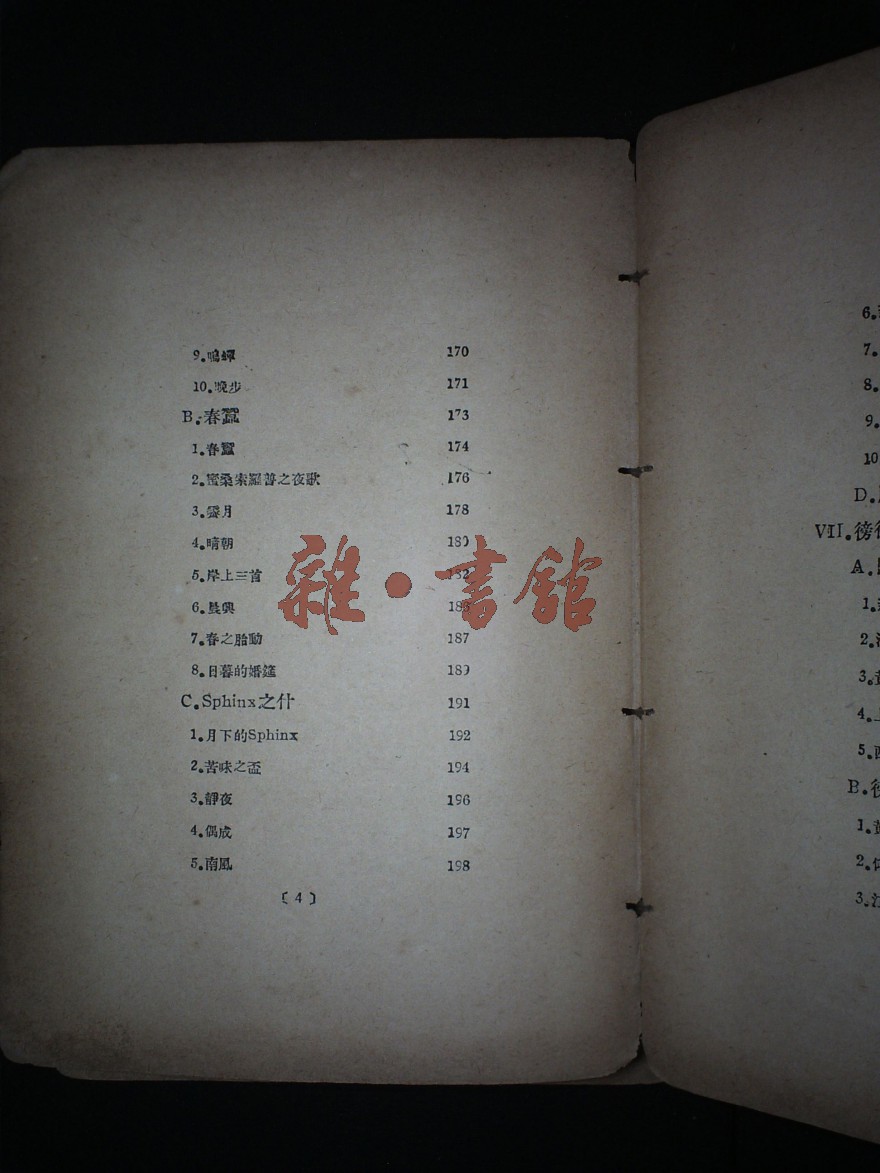 9.鳴蟬 170
10.晚步 171
B.春蠶 173
1.春蠶 174
2.蜜桑索羅普之夜歌 176
3.霽月 178
4.晴朝 180
5.岸上三首 182
6.晨興 186
7.春之胎動 187
8.日暮的婚筵 189
C.Sphinx之什 191
1.月下的Sphinx 192
2.苦味之盃 194
3.靜夜 196
4.偶成 197
5.南風 198
〔4〕
雜·書館
6.
7.
8.
9.
10
D.
VII.徬
A.
1.
2.
3.
4.
5.
B.
1.
2.
3.